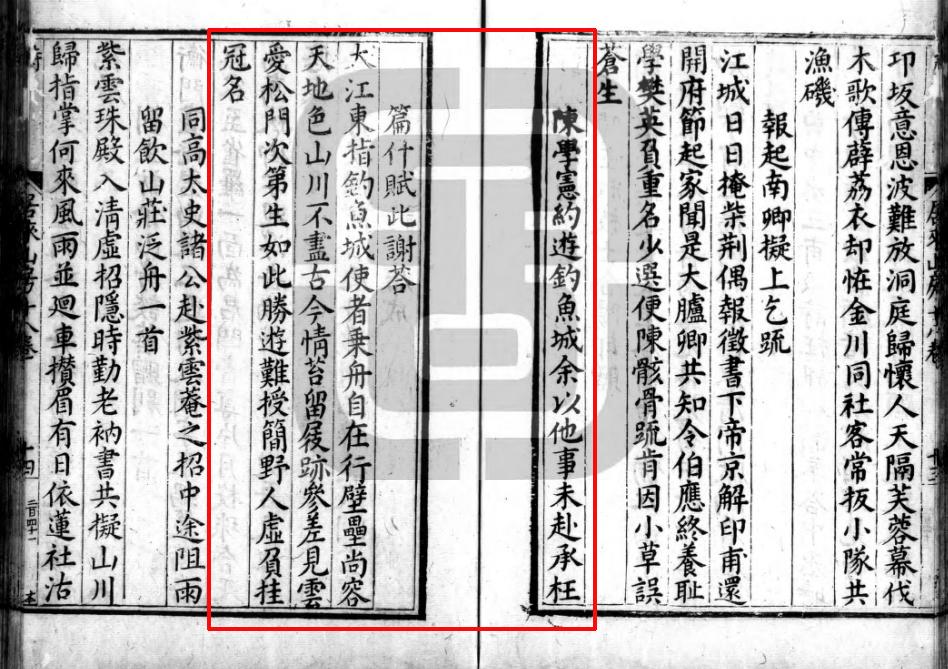 卭坂意恩波難放洞庭歸懷人天隔芙蓉幕伐
木歌傳薜荔衣却恠金川同社客常扳小隊共
漁磯
報起南卿擬上乞䟽
江城日日掩柴荆偶報徵書下帝京解印甫還
開府節起家聞是大臚卿共知令伯應終養耻
學樊英負重名少選便陳骸骨䟽肯因小草誤
蒼生
陳學憲約遊釣魚城余以他事未赴承枉
篇什賦此謝荅
大江東指釣魚城使者乗舟自在行壁壘尚容
天地色山川不盡古今情苔留屐跡參差見雲
愛松門次第生如此勝遊難授簡野人虛負挂
冠名
同高太史諸公赴紫雲菴之招中途阻雨
留飲山莊泛舟一首
紫雲珠殿入清虛招隱時勤老衲書共擬山川
歸指掌何來風雨並廻車攢眉有日依蓮社沽